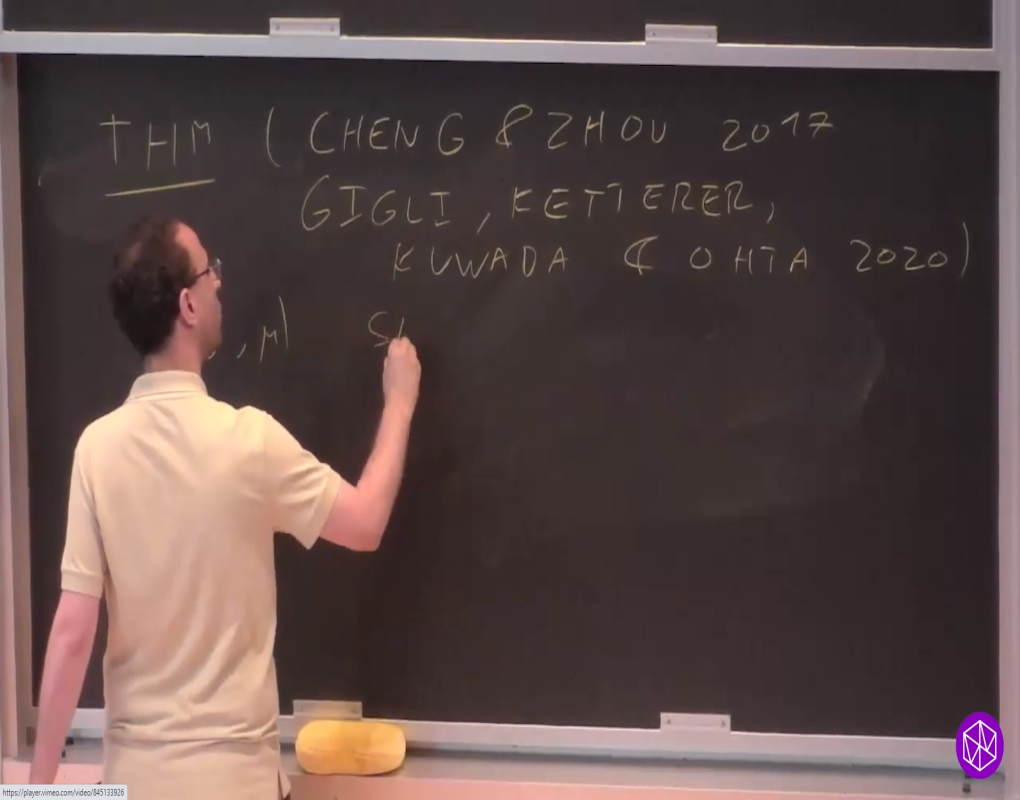 THM (CHENG & ZHOU 2017
GIGLI, KETTERER,
KUWADA & OHTA 2020)
, μ)
https://player.vimeo.com/video/845133926